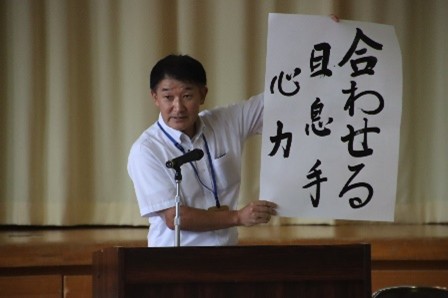 合わせる
目息手
心力